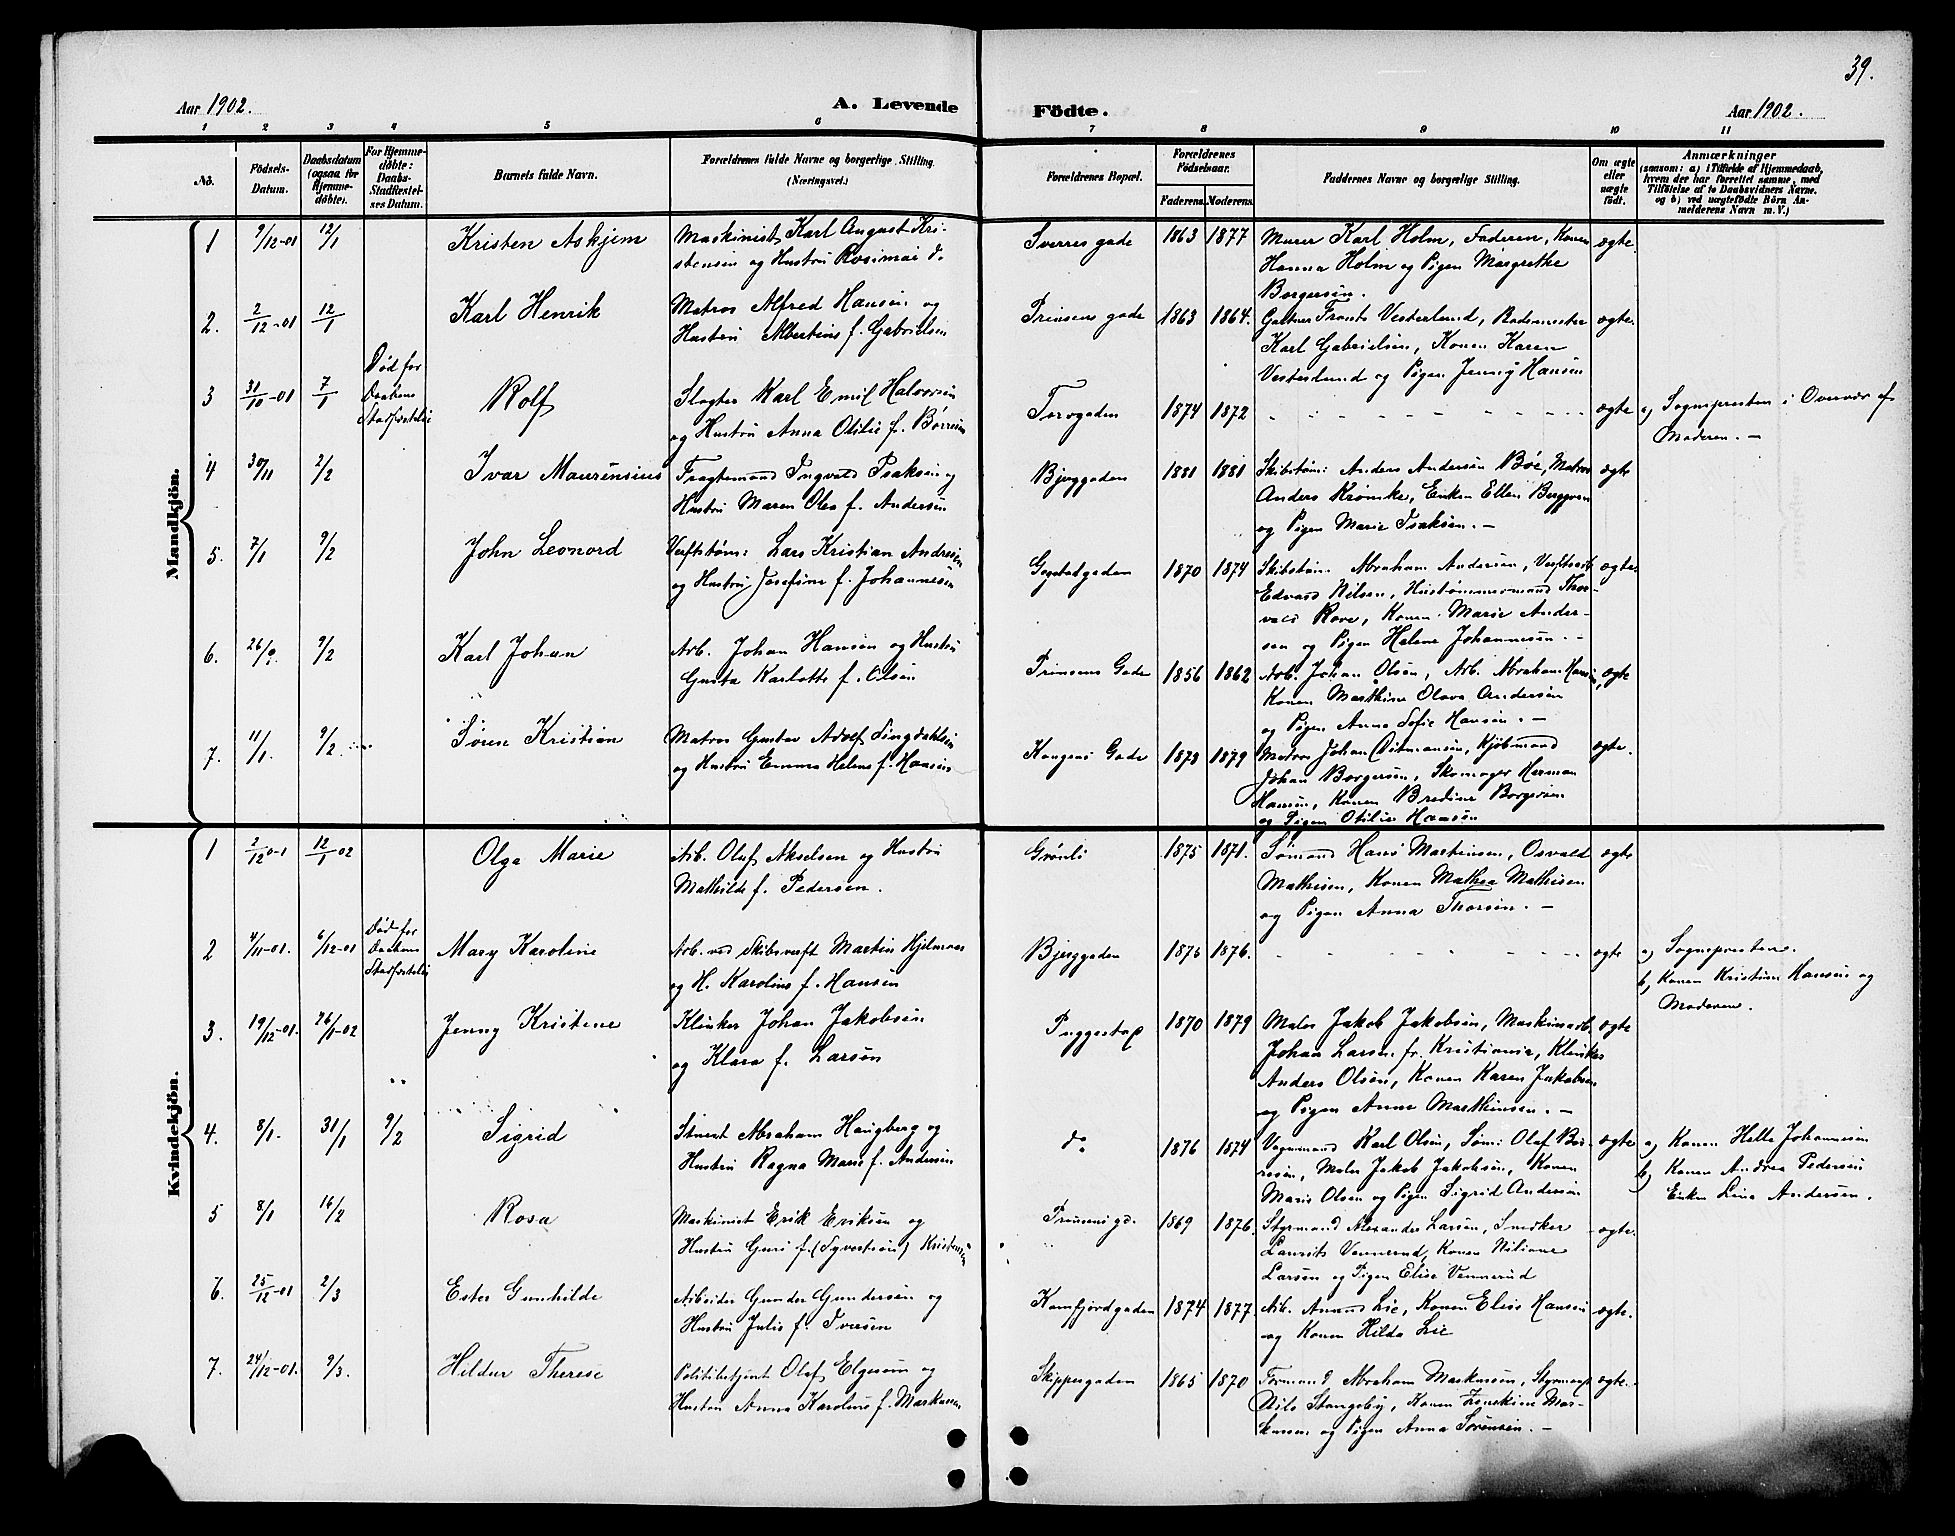 39.
Aar 1902.
A. Levende
Födte.
Aar 1902.
1 2 3 4 5 6 7 8 9 10 11
No.
Födsels-
Datum.
Daabsdatum
(ogsaa for
Hjemme-
döbte).
For Hjemme-
döbte:
Daabs-
Stadfæstel-
ses Datum.
Barnets fulde Navn.
Forældrenes fulde Navne og borgerlige Stilling.
(Næringsvei.)
Forældrenes Bopæl.
Forældrenes
Födselsaar.
Faderens. Moderens.
Faddernes Navne og borgerlige Stilling.
Om ægte
eller
uægte
født.
Anmærkninger
(saasom: a) i Tilfælde af Hjemmedaab,
hvem der har forrettet samme, med
Tilföielse af to Daabsvidners Navne,
og b) ved uægtefödte Börn An-
melderens Navn m. V.)
Mandkjön.
1 9/12-01 12/1 Kristen Askjem
Maskinist Karl August Kri-
stensen og Hustru Rosimai d.
Sverres gade 1863 1877
Murer Karl Holm, Faderen, Konen
Hanna Holm og Pigen Margrethe
Borgersen.
ægte
2. 2/12-01 12/1 Karl Henrik
Matros Alfred Hansen og
Hustru Albertine f. Gabrielsen
Prinsens gade 1863 1864.
Gartner Frants Vesterlund, Rademester
Karl Gabrielsen, Konen Karen
Vesterlund og Pigen Jenny Hansen
ægte.
3 31/10-01 7/1
Død før
Daabens
Stadfæstelse
Rolf
Slagter Karl Emil Halvorsen
og Hustru Anna Otilie f. Børresen
Torvgaden 1874 1872
ægte
a) Sognepresten i Overvær af
Moderen. —
4 30/11 2/2 Ivar Maurensius
Fragtemand Ingvald Isaksen og
Hustru Maren Olea f. Andersen
Bjerggaden 1881 1881
Skibstøm: Anders Andersen Bøe, Matros
Anders Krømke, Enken Ellen Berggren
og Pigen Marie Isaksen. —
ægte
5. 7/1 9/2 John Leonord
Verftstøm: Lars Kristian Andresen
og Hustru Josefine f. Johannesen
Gogstadgaden 1870 1874
Skibstøm. Abraham Andersen, Verftsarb
Edvard Nilsen, Hustømmermand Thor-
vald Rove, Konen Marie Ander-
sen og Pigen Helene Johannesen. —
ægte.
6. 26/9. 9/2 Karl Johan
Arb. Johan Hansen og Hustru
Gusta Karlotte f. Olsen
Prinsens Gade 1856 1862
Arb. Johan Olsen, Arb. Abraham Hansen,
Konen Marthine Olava Andersen
og Pigen Anna Sofie Hansen. —
ægte
7. 11/1. 9/2 Søren Kristian
Matros Gustav Adolf Lingdahlsen
og Hustru Emma Helene f. Hansen
Kongens Gade 1873 1879
Matros Johan Ditmansen, Kjøbmand
Johan Borgersen, Skomager Herman
Hansen, Konen Bredine Borgersen
og Pigen Otilie Hansen
ægte.
Kvindekjön.
1 2/12 0-1 12/1-02 Olga Marie
Arb. Oluf Akselsen og Hustru
Mathilde f. Pedersen.
Grønli 1875 1871.
Sømand Hans Martinsen, Osvald
Mathisen, Konen Mathea Mathisen
og Pigen Anna Thorsen. —
ægte
2 4/11-01. 6/12-01
Død før
Daabens
Stadfæstelse
Mary Karoline
Arb. ved Skibsverft Martin Hjelmaas
og H. Karoline f. Hansen
Bjerggaden 1875 1876.
ægte
a) Sognepresten.
b) Konen Kristine Hansen og
Moderen.
3. 19/12-01. 26/1-02 Jenny Kristene
Klinker Johan Jakobsen
og Klara f. Larsen
Preggestap 1870 1879
Maler Jakob Jakobsen, Maskinarb.
Johan Larsen fr. Kristiania, Klinker
Anders Olsen, Konen Karen Jakobsen
og Pigen Anne Marthinsen. —
ægte
4. 8/1. 31/1 9/2 Sigrid
Stuert Abraham Haugberg og
Hustru Ragna Marie f. Andersen
do 1876 1874
Vognmand Karl Olsen, Søm: Olaf Bør-
resen, Maler Jakob Jakobsen, Konen
Marie Olsen og Pigen Sigrid Andersen
ægte
a) Konen Helle Johannesen
b) Konen Andrea Pedersen
Enken Lina Andersen.
5 8/1 16/2 Rosa
Maskinist Erik Eriksen og
Hustru Guri f. (Syvertsen) Kristensen
Prinsens gd. 1869 1876.
Styrmand Alexander Larsen, Snedker
Laurits Vennerud, Konen Nitiane
Larsen og Pigen Elise Vennerud
ægte.
6. 25/12-01 2/3 Ester Gunhilde
Arbeider Gunder Gundersen og
Hustru Julie f. Iversen
Kamfjordgaden 1874 1877.
Arb. Amund Lie, Konen Elise Hansen
og Konen Hilda Lie
ægte.
7. 24/12-01. 9/3. Hildur Therese
Politibetjent Olaf Elgesem og
Hustru Anna Karoline f. Markussen
Skippergaden 1865 1870
Formand Abraham Markusen, Styrmand
Nils Stangeby, Konen Mar-
kussen og Pigen Anna Sørensen. —
ægte.